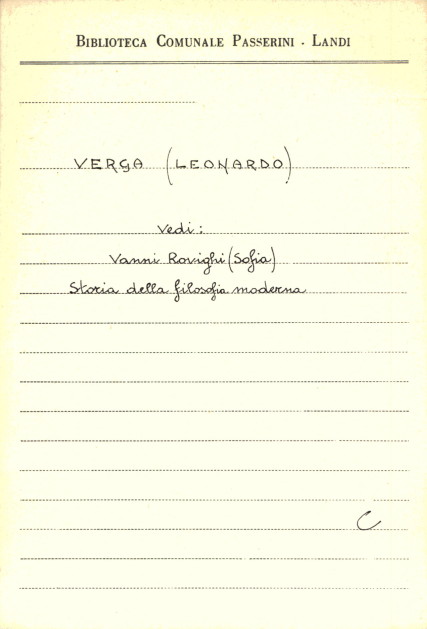 BIBLIOTECA COMUNALE PASSERINI - LANDI
VERGA (LEONARDO)
Vedi:
Vanni Rovighi (Sofia)
Storia della filosofia moderna
C